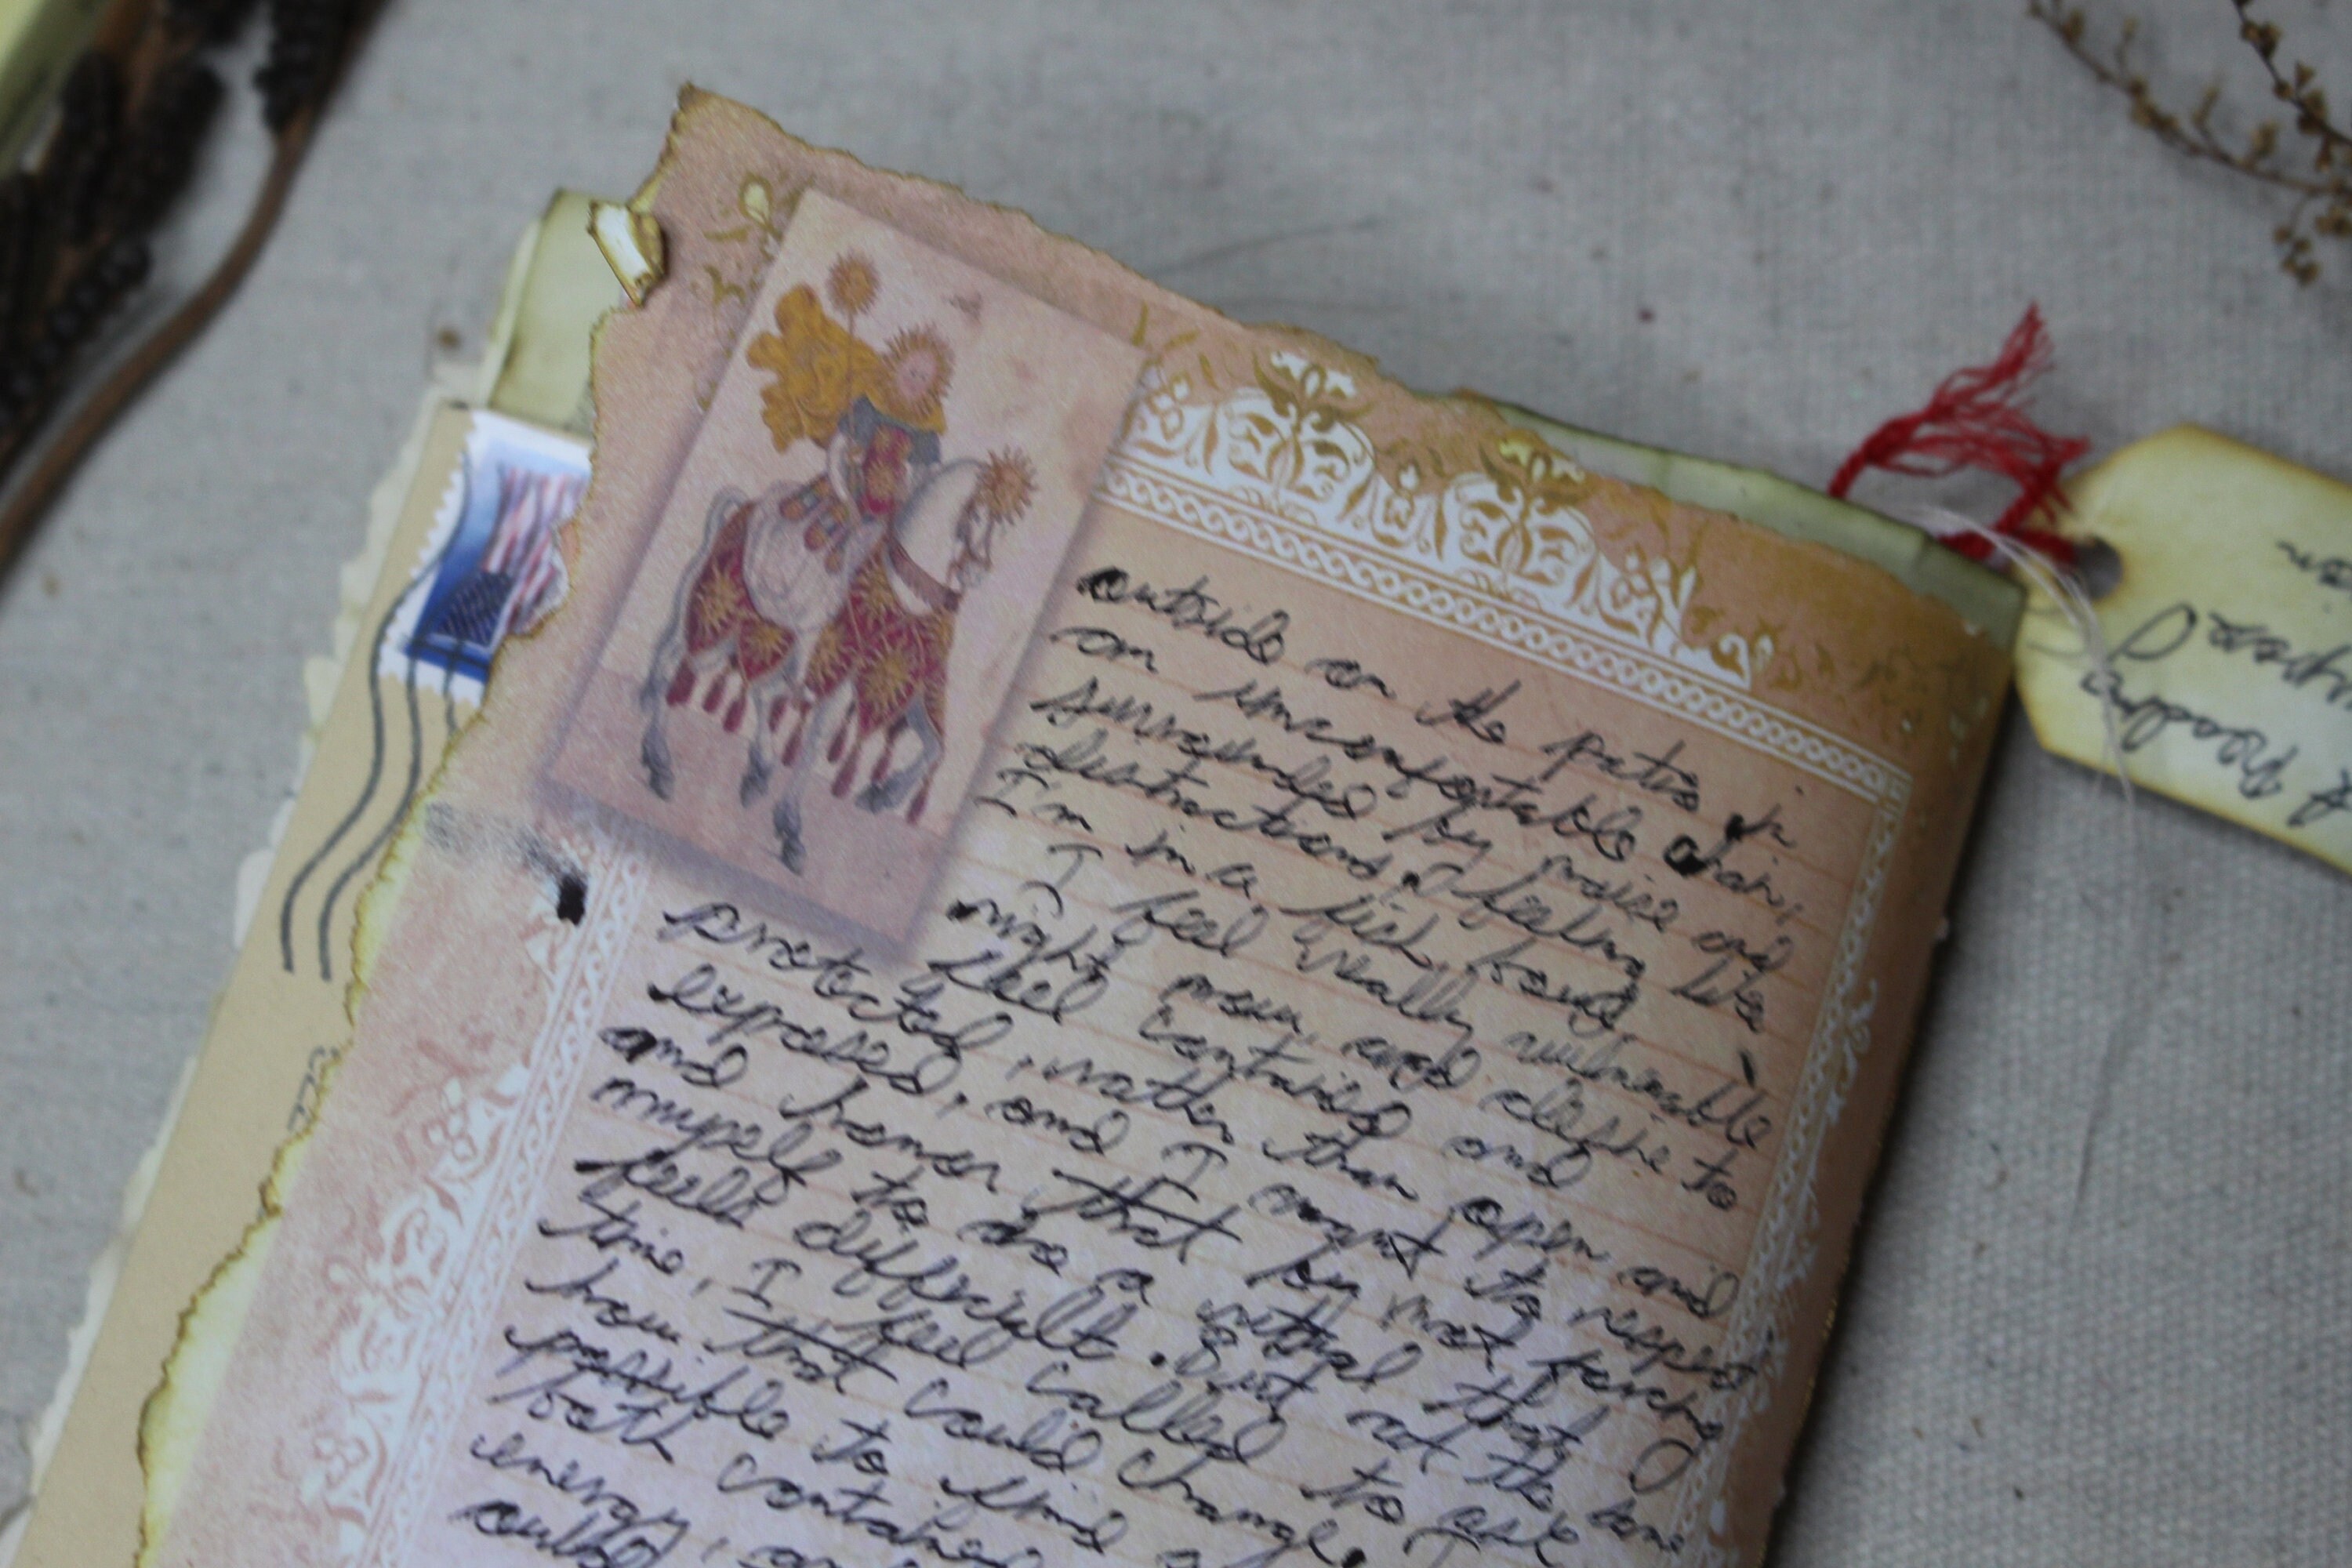 outside on the patio in
an uncomfortable chair,
surrounded by noise and
distractions, feeling like
I'm in a fish bowl
I feel really vulnerable
right now, and desire to
feel contained and
protected, rather than open and
exposed, and I want to respect
and honor that by not forcing
myself to do a ritual that
feels difficult. But at the same
time, I feel called to ask
how that could change,
possible to find a
both contained
energy,